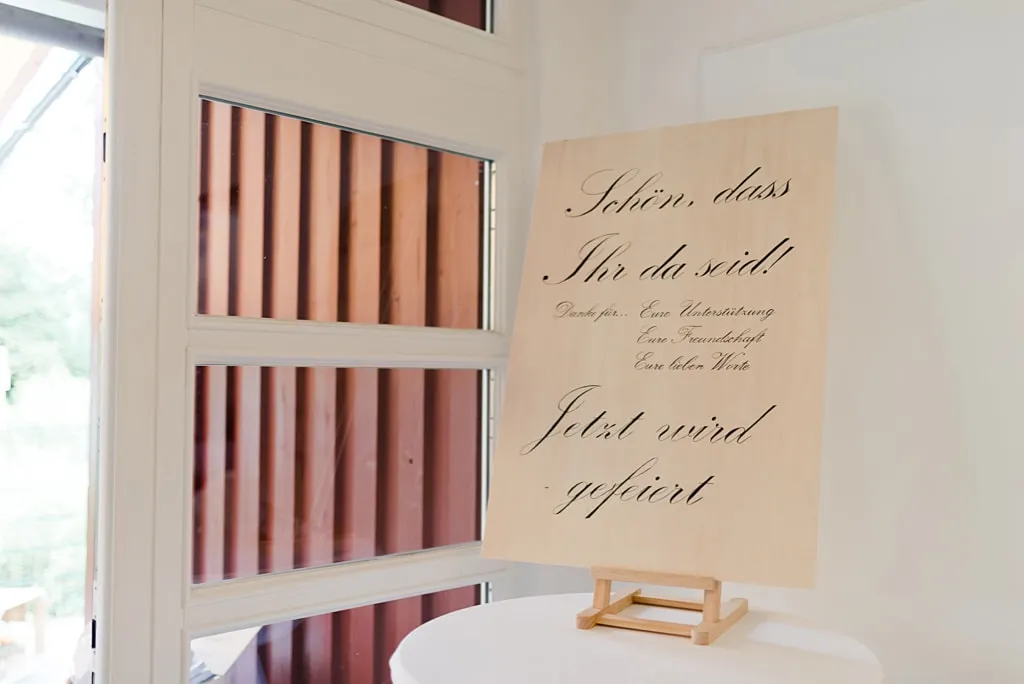 Schön, dass
Ihr da seid!
Danke für... Eure Unterstützung
Eure Freundschaft
Eure lieben Worte
Jetzt wird
gefeiert